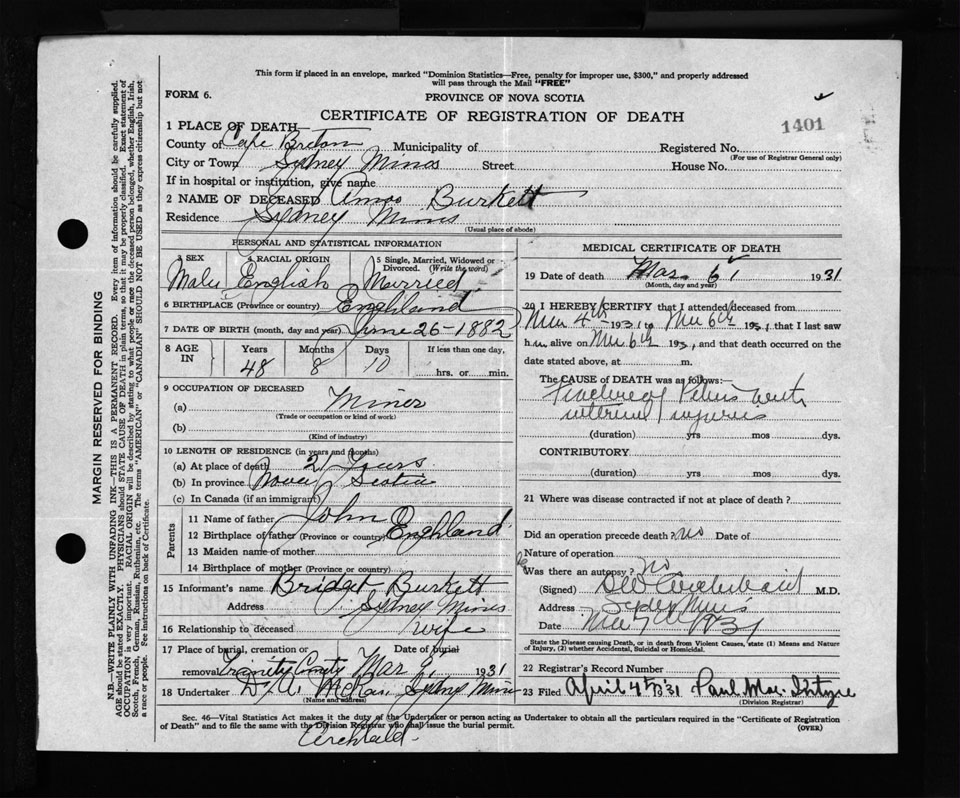 This form if placed in an envelope, marked "Dominion Statistics—Free, penalty for improper use, $300," and properly addressed
will pass through the Mail "FREE"
FORM 6.
PROVINCE OF NOVA SCOTIA
CERTIFICATE OF REGISTRATION OF DEATH
1401
1 PLACE OF DEATH
County of Cape Breton Municipality of Registered No.
(For use of Registrar General only)
City or Town Sydney Mines Street House No.
If in hospital or institution, give name
2 NAME OF DECEASED Amos Burkett
Residence Sydney Mines
(Usual place of abode)
PERSONAL AND STATISTICAL INFORMATION
3 SEX 4 RACIAL ORIGIN 5 Single, Married, Widowed or
Divorced. (Write the word)
Male English Married
6 BIRTHPLACE (Province or country) Enghland
7 DATE OF BIRTH (month, day and year) June 26-1882
8 AGE IN Years Months Days If less than one day,
48 8 10 hrs. or min.
9 OCCUPATION OF DECEASED
(a) Miner
(Trade or occupation or kind of work)
(b)
(Kind of industry)
10 LENGTH OF RESIDENCE (in years and months)
(a) At place of death 21 Years
(b) In province Nova Scotia
(c) In Canada (if an immigrant)
Parents
11 Name of father John
12 Birthplace of father (Province or country) Enghland
13 Maiden name of mother
14 Birthplace of mother (Province or country)
15 Informant's name Bridget Burkett
Address Sydney Mines
16 Relationship to deceased wife
17 Place of burial, cremation or Date of burial
removal Trinity Mar 9, 1931
18 Undertaker Sydney Mines
(Name and address)
MEDICAL CERTIFICATE OF DEATH
19 Date of death Mar. 6, 1931
(Month, day and year)
20 I HEREBY CERTIFY that I attended deceased from
Mar 4th 1931, to Mar 6th 1931, that I last saw
him alive on Mar 6th 193, and that death occurred on the
date stated above, at m.
The CAUSE of DEATH was as follows:
Fracture of Pelvis with
internal injuries
(duration) yrs mos dys.
CONTRIBUTORY
(duration) yrs mos dys.
21 Where was disease contracted if not at place of death?
Did an operation precede death? no Date of
Nature of operation
Was there an autopsy? no
(Signed) Archibald M.D.
Address Sydney Mines
Date Mar 7th 1931
State the Disease causing Death, or in death from Violent Causes, state (1) Means and Nature
of Injury, (2) whether Accidental, Suicidal or Homicidal.
22 Registrar's Record Number
23 Filed April 4th 31 Paul
(Division Registrar)
Sec. 46—Vital Statistics Act makes it the duty of the Undertaker or person acting as Undertaker to obtain all the particulars required in the "Certificate of Registration
of Death" and to file the same with the Division Registrar who shall issue the burial permit.
(OVER)
Archbald.
MARGIN RESERVED FOR BINDING
N.B.—WRITE PLAINLY WITH UNFADING INK—THIS IS A PERMANENT RECORD. Every item of information should be carefully supplied.
AGE should be stated EXACTLY. PHYSICIANS should STATE CAUSE OF DEATH in plain terms, so that it may be properly classified. Exact statement of
OCCUPATION is very important. RACIAL ORIGIN will be described by stating to what people or race the deceased person belonged, whether English, Irish,
Scotch, French, German, Russian, Ruthenian, etc. The terms "AMERICAN" or "CANADIAN" SHOULD NOT BE USED as they express citizenship but not
a race or people. See instructions on back of Certificate.